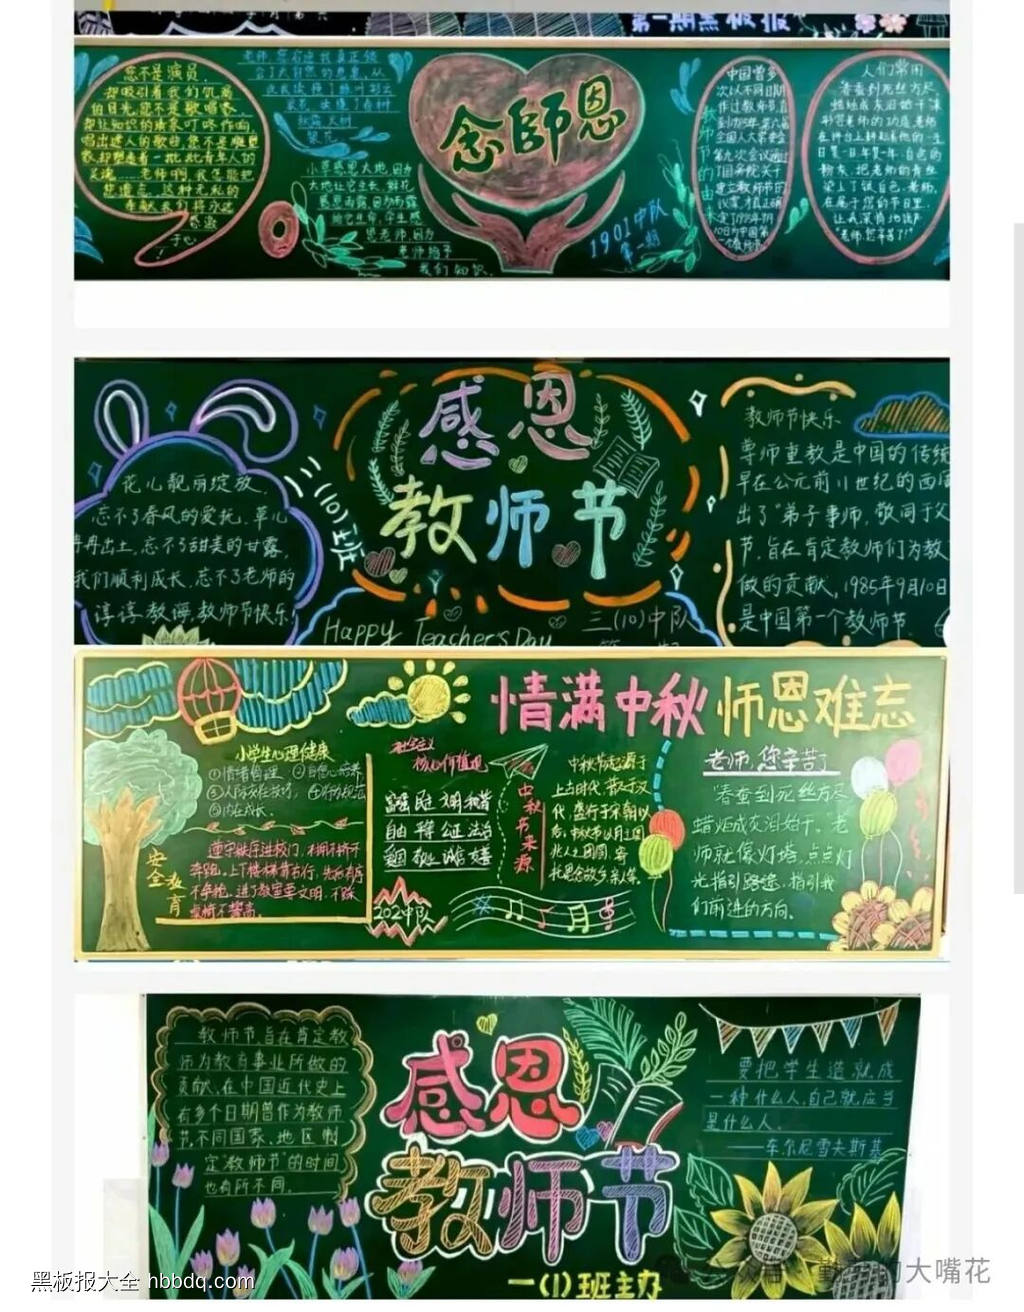 第一期黑板报
您不是演员，
却吸引着我们饥渴
的目光，您不是歌唱家，
却让知识的清泉叮咚作响，
唱出迷人的歌曲，您不是雕塑
家，却塑造着一批批青年人的
灵魂……老师啊，我怎能把
您遗忘
这种无私的
奉献我们将永远
感激
于心
小草感恩大地，因为
大地让它生长，鲜花
感恩雨露，因为雨露
给它生命，学生感
恩老师，因为
老师给予
我们知识。
念師恩
1901中队
第一期
教师节的由来
中国曾多
次以不同日期
作过教师节，直
到1985年，第六届
全国人大常委会
第九次会议通过
了国务院关于
建立教师节的
议案，才真正确
定了1985年9月
10日为中国第一
个教师节。
人们常用
春蚕到死丝方尽，
蜡炬成灰泪始干来
形容老师的功绩，老师
在讲台上耕耘着他的一生
日复一日年复一年，白色的
粉灰，把老师的青丝
染上了银白色，老师，
在属于您的节日里，
让我深情地说声
“老师，您辛苦了！”
花儿靓丽绽放，
忘不了春风的爱抚，草儿
冉冉出土，忘不了甜美的甘露，
我们顺利成长，忘不了老师的
谆谆教诲，教师节快乐！
三(10)班
感恩
教师节
Happy Teacher's Day
三(10)中队
教师节快乐
尊师重教是中国的传统
早在公元前11世纪的西周
出了“弟子事师，敬同于父
节，旨在肯定教师们为教
做的贡献，1985年9月10日
是中国第一个教师节
情满中秋 师恩难忘
小学生心理健康
①情绪管理 ②自信心培养
③人际交往技巧 ④行为规范
⑤内在成长。
安全教育
遵守秩序进校门，不拥不挤不
奔跑，上下楼梯靠右行，先后有序
不争抢，进了教室要文明，不跺
桌椅不攀高。
社会主义
核心价值观
富强 民主 文明 和谐
自由 平等 公正 法治
爱国 敬业 诚信 友善
202中队
中秋节来源
中秋节起源于
上古时代，普及于汉
代，盛行于宋朝以
后，中秋节以月之圆
兆人之团圆，寄
托思念故乡亲人等。
老师，您辛苦了
春蚕到死丝方尽
蜡炬成灰泪始干。老
师就像灯塔，点点灯
光指引路途，指引我
们前进的方向。
教师节旨在肯定教
师为教育事业所做的
贡献，在中国近代史上
有多个日期曾作为教师
节，不同国家、地区制
定“教师节”的时间
也有所不同。
感恩
教师节
一(1)班主办
要把学生造就成
一种什么人，自己就应当
是什么人。
——车尔尼雪夫斯基
黑板报大全 hbbdq.com
的大嘴花